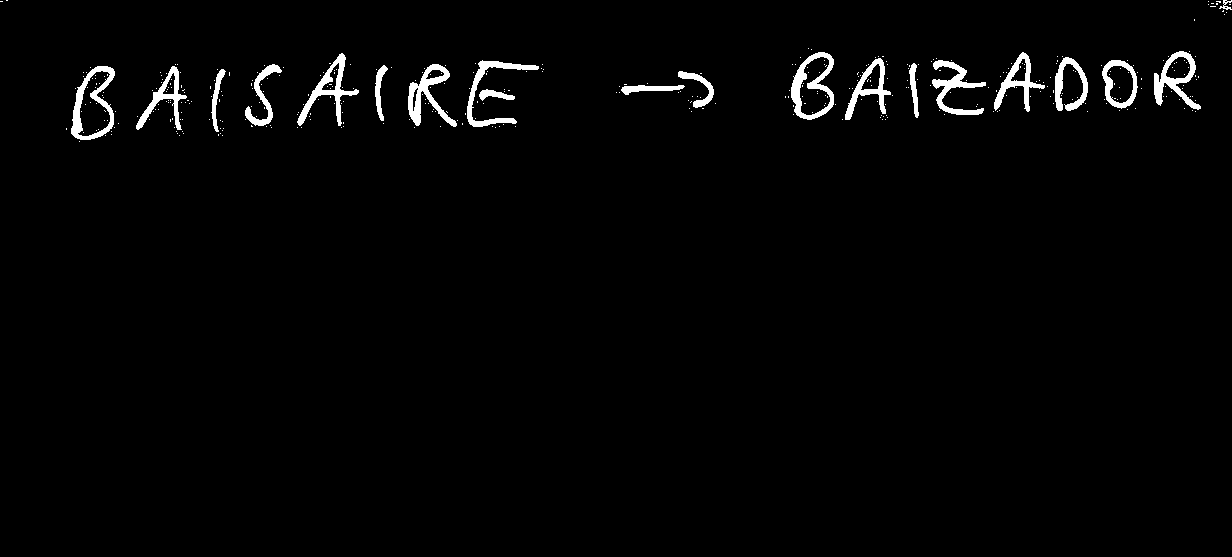 BAISAIRE → BAIZADOR